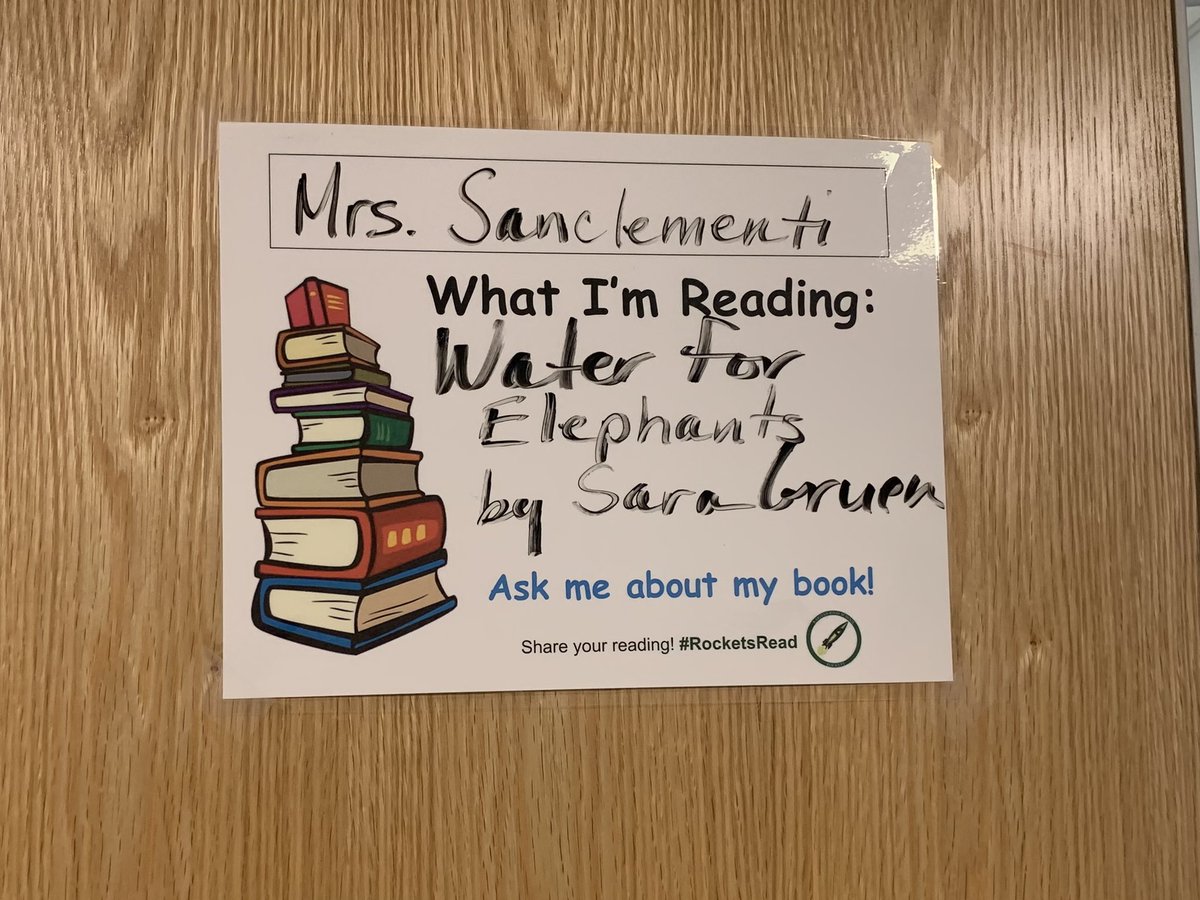 Mrs. Sanclementi
What I'm Reading:
Water for
Elephants
by Sara Gruen
Ask me about my book!
Share your reading! #RocketsRead